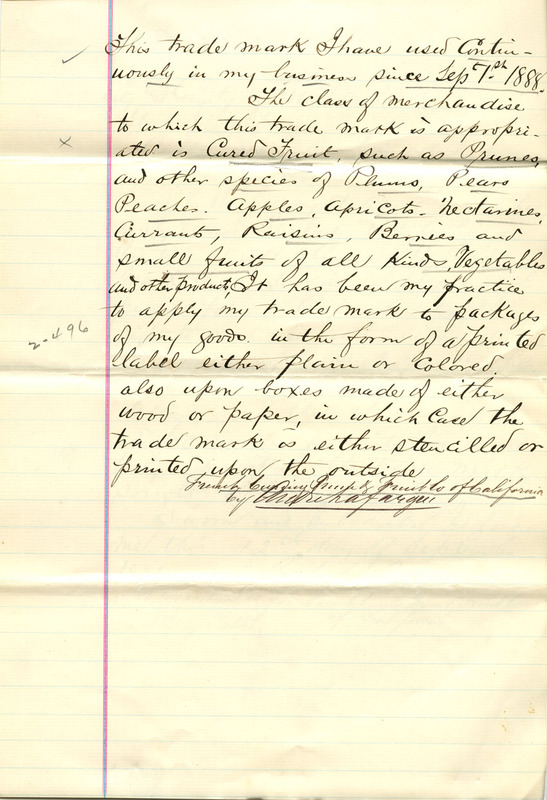 This trade mark I have used Contin-
uously in my business since Sep 1st 1888.
The class of merchandise
to which this trade mark is appropri-
ated is Cured Fruit, such as Prunes,
and other species of Plums, Pears
Peaches. Apples, Apricots. Nectarines,
Currants, Raisins, Berries and
small fruits of all Kinds, Vegetables
and other products, It has been my practice
to apply my trade mark to packages
of my goods. in the form of a printed
label either plain or colored.
also upon boxes made of either
wood or paper, in which case the
trade mark is either stencilled or
printed upon the outside
French Curing Fruit Co of California
by
2-496